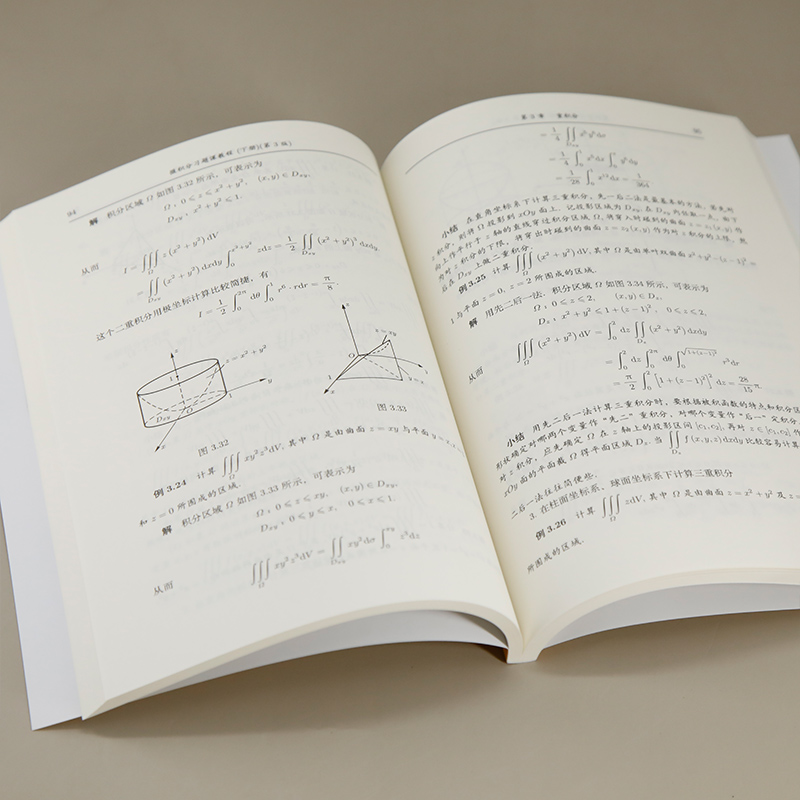 94 微积分习题课教程 (下册)(第3版)
解 积分区域 Ω 如图 3.32 所示, 可表示为
Ω: 0 ≤ z ≤ x² + y², (x, y) ∈ Dxy,
Dxy: x² + y² ≤ 1.
从而 I = ∭Ω z(x² + y²) dV
= ∬Dxy (x² + y²) dxdy ∫₀^(x²+y²) zdz = 1/2 ∬Dxy (x² + y²)³ dxdy.
这个二重积分用极坐标计算比较简捷, 有
I = 1/2 ∫₀^(2π) dθ ∫₀¹ r⁶ · rdr = π/8.
z
1
z = x² + y²
Dxy
O
1
y
x
图 3.32
z
z = xy
O
1
x
y = x
图 3.33
例 3.24 计算 ∭Ω xy²z³dV, 其中 Ω 是由曲面 z = xy 与平面 y = x,
和 z = 0 所围成的区域.
解 积分区域 Ω 如图 3.33 所示, 可表示为
Ω: 0 ≤ z ≤ xy, (x, y) ∈ Dxy,
Dxy: 0 ≤ y ≤ x, 0 ≤ x ≤ 1.
从而 ∭Ω xy²z³dV = ∬Dxy xy²dσ ∫₀^(xy) z³dz
第 3 章 重积分 95
= 1/4 ∬Dxy x⁵y⁶dσ
= 1/4 ∫₀¹ x⁵dx ∫₀ˣ y⁶dy
= 1/28 ∫₀¹ x¹²dx = 1/364
小结 在直角坐标系下计算三重积分, 先一后二法是最基本的方法. 若先对
z 积分, 则将 Ω 投影到 xOy 面上, 记投影区域为 Dxy, 在 Dxy 内任取一点, 由下
向上作平行于 z 轴的直线穿过积分区域 Ω, 将穿入时碰到的曲面 z = z₁(x, y) 作
为对 z 积分的下限, 将穿出时碰到的曲面 z = z₂(x, y) 作为对 z 积分的上限, 然
后在 Dxy 上做二重积分.
例 3.25 计算 ∭Ω (x² + y²) dV, 其中 Ω 是由单叶双曲面 x² + y² − (z − 1)² =
1 与平面 z = 0, z = 2 所围成的区域.
解 用先二后一法. 积分区域 Ω 如图 3.34 所示, 可表示为
Ω: 0 ≤ z ≤ 2, (x, y) ∈ Dz,
Dz: x² + y² ≤ 1 + (z − 1)², 0 ≤ z ≤ 2.
从而 ∭Ω (x² + y²) dV = ∫₀² dz ∬Dz (x² + y²) dxdy
= ∫₀² dz ∫₀^(2π) dθ ∫₀^√(1+(z−1)²) r³dr
= π/2 ∫₀² [1 + (z − 1)²]² dz = 28/15 π.
小结 用先二后一法计算三重积分时, 要根据被积函数的特点和积分区
形状确定对哪两个变量作“先二”重积分, 对哪个变量作“后一”定积分.
对 z 积分, 应先确定 Ω 在 z 轴上的投影区间 [c₁, c₂], 再对 z ∈ [c₁, c₂] 作
xOy 面的平面截 Ω 得平面区域 Dz. 当 ∬Dz f(x, y, z) dxdy 比较容易计算
二后一法往往简便些.
3. 在柱面坐标系, 球面坐标系下计算三重积分
例 3.26 计算 ∭Ω zdV, 其中 Ω 是由曲面 z = x² + y² 及 z =
所围成的区域.